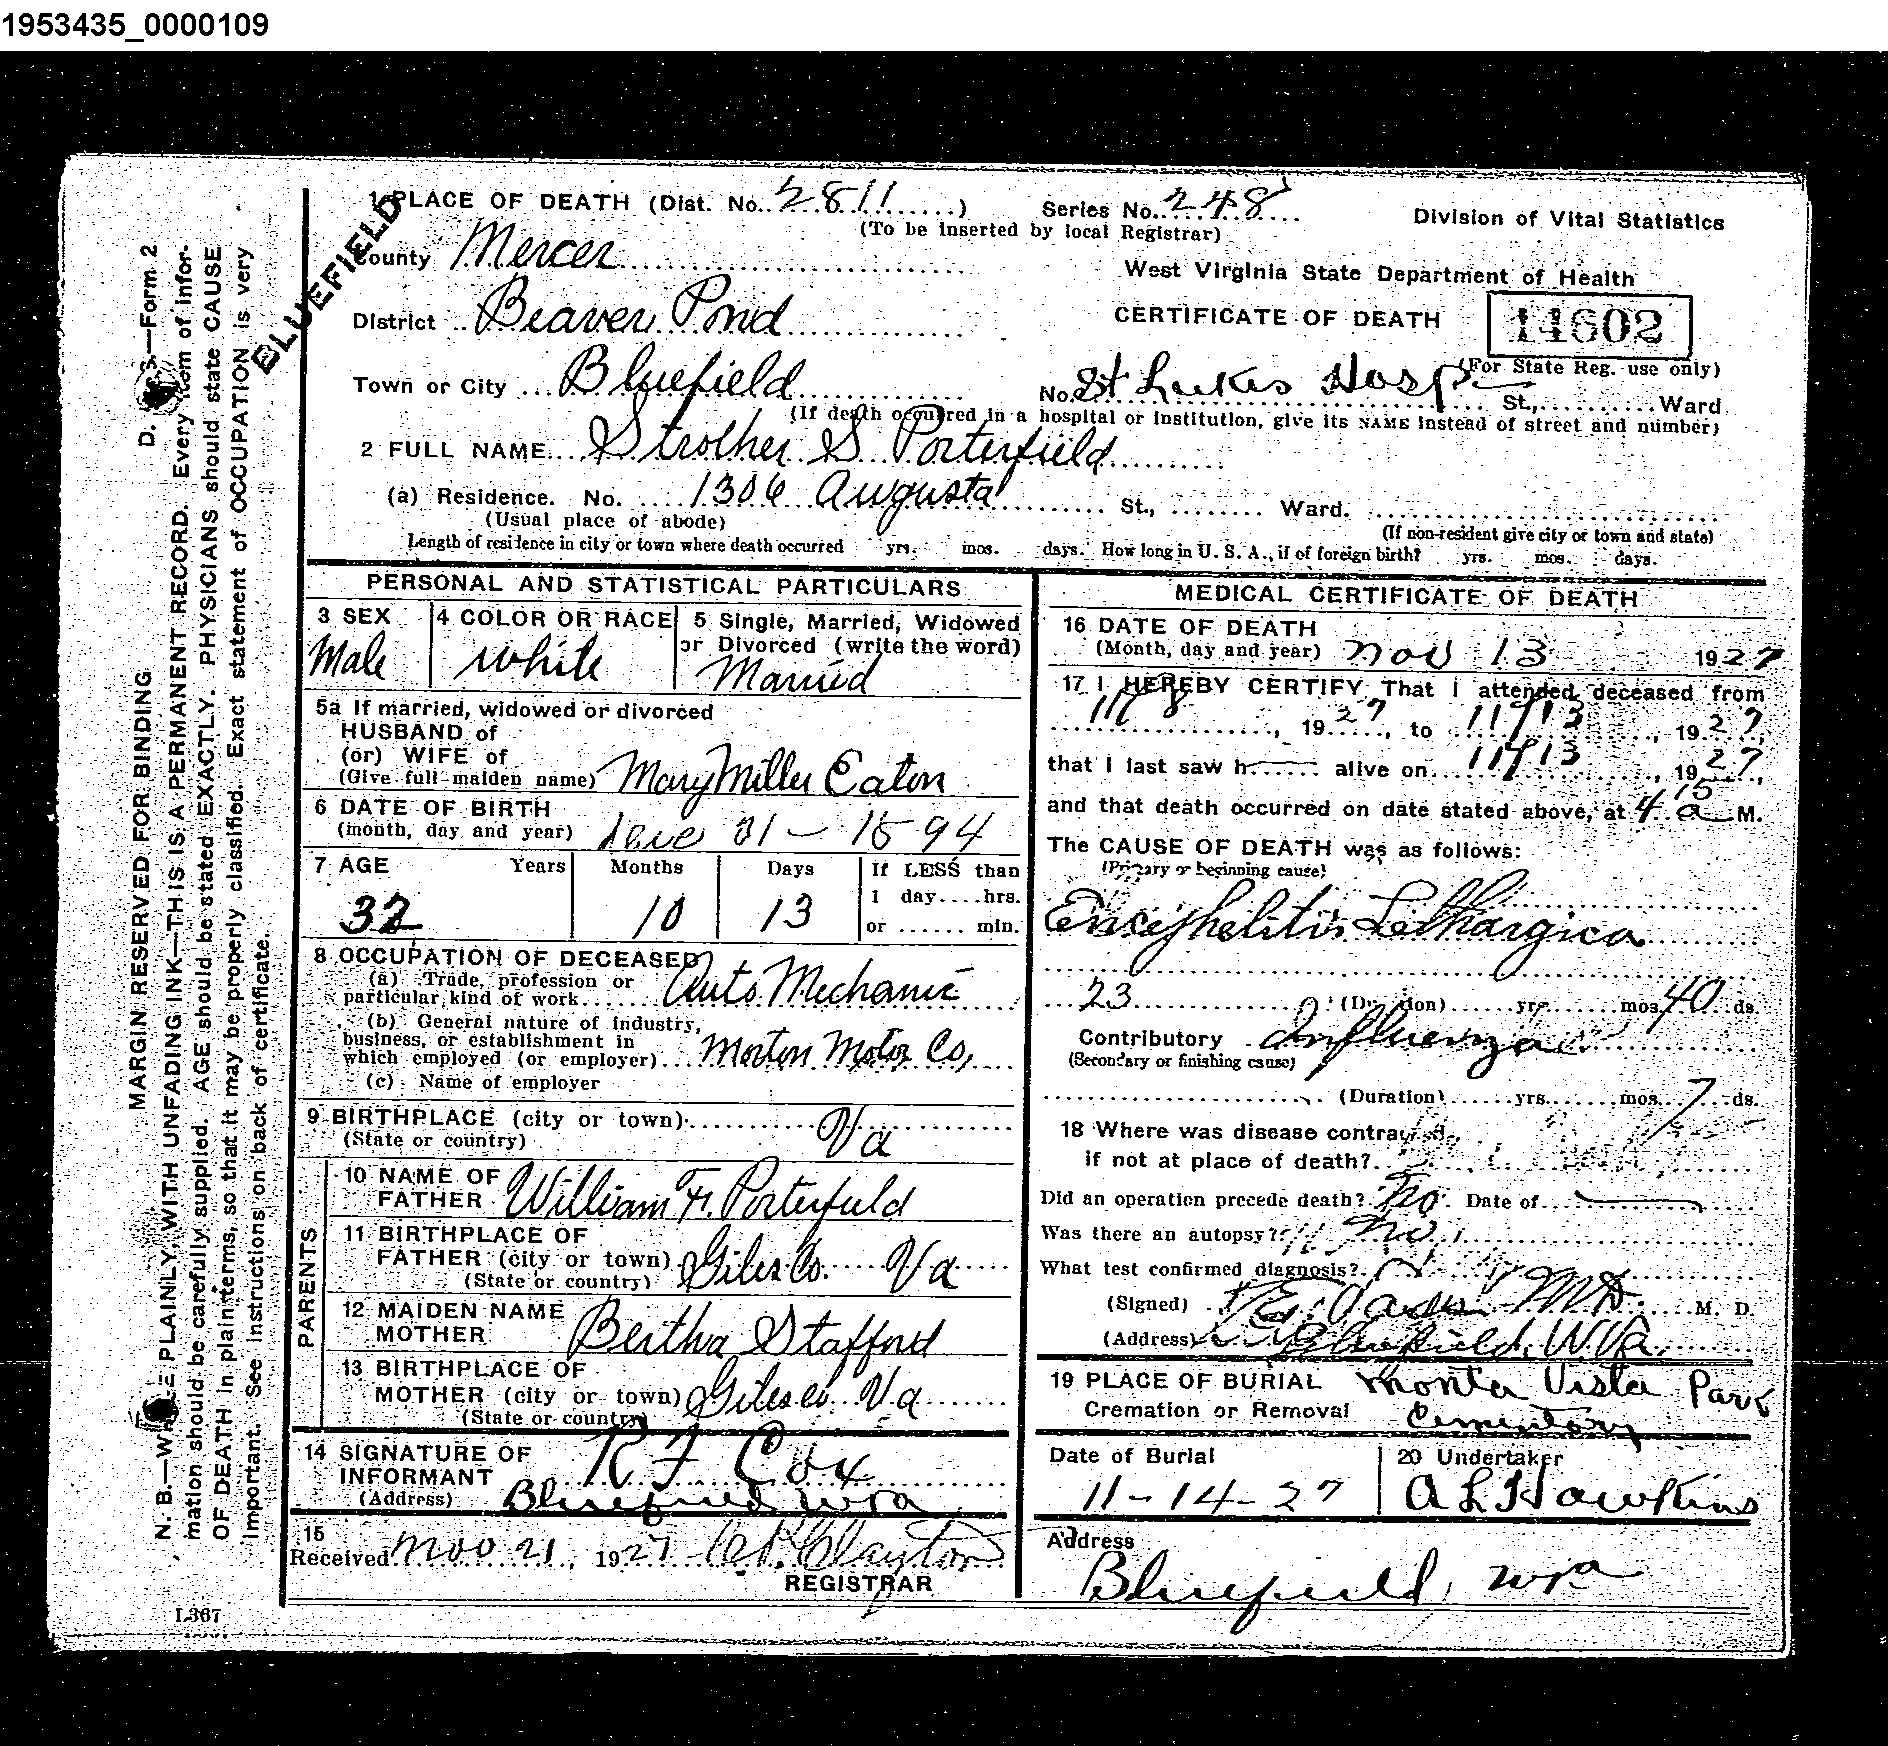 1953435_0000109
1 PLACE OF DEATH (Dist. No. 2811) Series No. 248
(To be inserted by local Registrar)
Division of Vital Statistics
BLUEFIELD
County Mercer
West Virginia State Department of Health
District Beaver Pond
CERTIFICATE OF DEATH 14602
(For State Reg. use only)
Town or City Bluefield No. St Lukes Hosp St., Ward
(If death occurred in a hospital or institution, give its NAME instead of street and number)
2 FULL NAME Strother S Porterfield
(a) Residence. No. 1306 Augusta St., Ward.
(Usual place of abode) (If non-resident give city or town and state)
Length of residence in city or town where death occurred yrs. mos. days. How long in U. S. A., if of foreign birth? yrs. mos. days.
PERSONAL AND STATISTICAL PARTICULARS
3 SEX Male
4 COLOR OR RACE white
5 Single, Married, Widowed
or Divorced (write the word)
Married
5a If married, widowed or divorced
HUSBAND of
(or) WIFE of
(Give full maiden name) Mary Miller Eaton
6 DATE OF BIRTH
(month, day and year) 31 - 1894
7 AGE Years Months Days If LESS than
1 day....hrs.
or ...... min.
32 10 13
8 OCCUPATION OF DECEASED
(a) Trade, profession or
particular kind of work Auto Mechanic
(b) General nature of Industry,
business, or establishment in
which employed (or employer) Morton Motor Co,
(c) Name of employer
9 BIRTHPLACE (city or town)
(State or country) Va
PARENTS
10 NAME OF
FATHER William F. Porterfield
11 BIRTHPLACE OF
FATHER (city or town) Giles Co. Va
(State or country)
12 MAIDEN NAME
MOTHER Bertha Stafford
13 BIRTHPLACE OF
MOTHER (city or town) Giles Co. Va
(State or country)
14 SIGNATURE OF
INFORMANT R F Cox
(Address) Bluefield W Va
15
Received Nov 21, 1927 Clayton
REGISTRAR
MEDICAL CERTIFICATE OF DEATH
16 DATE OF DEATH
(Month, day and year) Nov 13 1927
17 I HEREBY CERTIFY That I attended deceased from
11/8, 1927, to 11/13, 1927,
that I last saw h alive on 11/13, 1927,
and that death occurred on date stated above, at 4 15 a M.
The CAUSE OF DEATH was as follows:
(Primary or beginning cause)
Encephelitis Lethargica
23 (Duration) yrs. mos. 40 ds.
Contributory Influenza
(Secondary or finishing cause)
(Duration) yrs. mos. 7 ds.
18 Where was disease contracted
if not at place of death?
Did an operation precede death? No. Date of
Was there an autopsy? No
What test confirmed diagnosis?
(Signed) MD M. D.
(Address) Bluefield, W Va.
19 PLACE OF BURIAL Monta Vista Park
Cremation or Removal Cementary
Date of Burial 11-14-27
20 Undertaker A L Hawkins
Address
Bluefield, W Va
MARGIN RESERVED FOR BINDING D. —Form 2
N. B.—WRITE PLAINLY, WITH UNFADING INK—THIS IS A PERMANENT RECORD. Every item of infor-
mation should be carefully supplied. AGE should be stated EXACTLY. PHYSICIANS should state CAUSE
OF DEATH in plain terms, so that it may be properly classified. Exact statement of OCCUPATION is very
important. See instructions on back of certificate.
L367